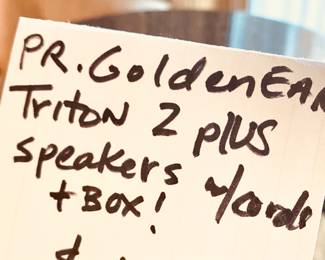 PR. GoldenEAR
Triton 2 plus
speakers w/cords
+ Box!